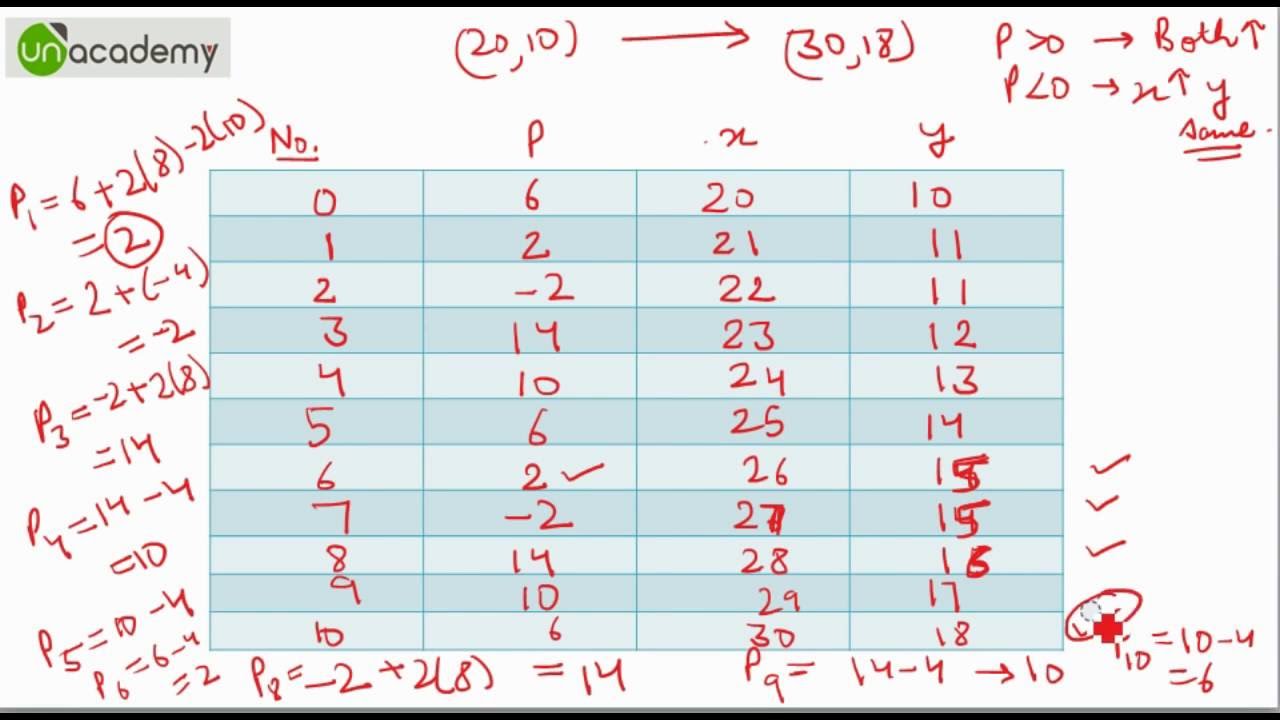 unacademy
(20,10) ⟶ (30,18)
P>0 → Both↑
P<0 → x↑ y
same.
No. P x y
0 6 20 10
1 2 21 11
2 -2 22 11
3 14 23 12
4 10 24 13
5 6 25 14
6 2 ✓ 26 15 ✓
7 -2 27 15 ✓
8 14 28 16 ✓
9 10 29 17
10 6 30 18
P₁ = 6+2(8)-2(10)
= 2
P₂ = 2+(-4)
= -2
P₃ = -2+2(8)
= 14
P₄ = 14-4
= 10
P₅ = 10-4
P₆ = 6-4
= 2
P₈ = -2+2(8) = 14
P₉ = 14-4 → 10
₁₀ = 10-4
= 6